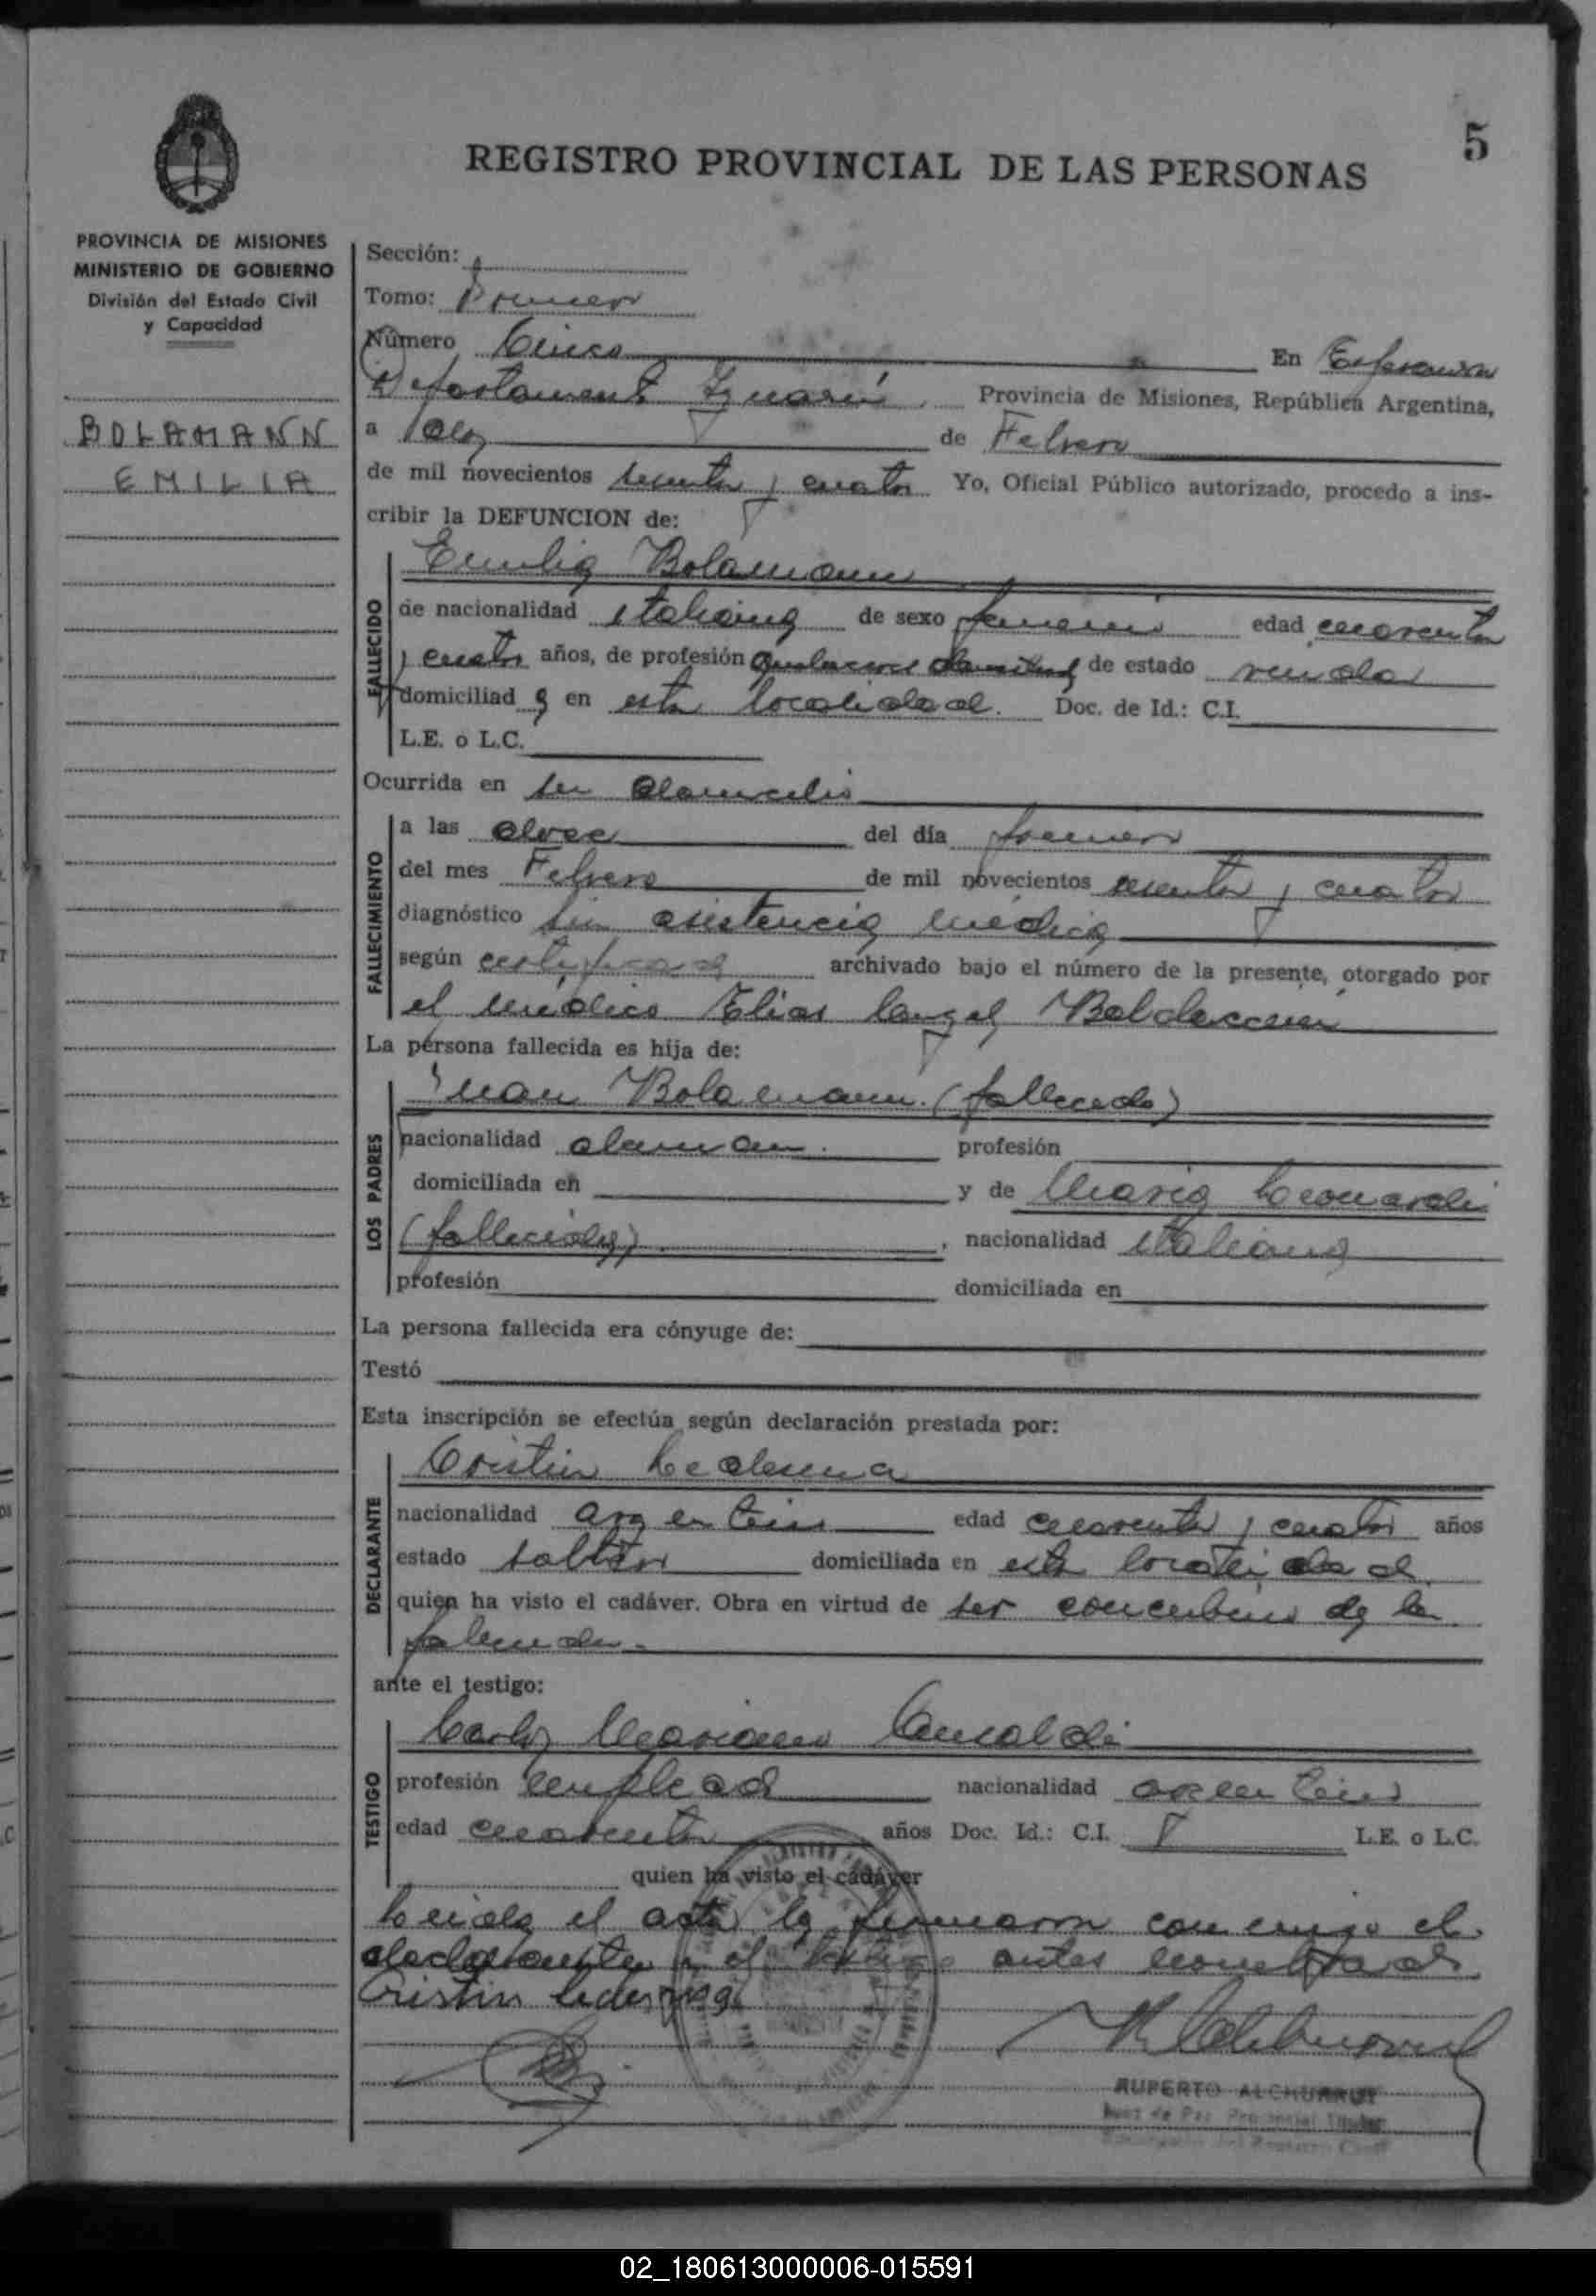 5
REGISTRO PROVINCIAL DE LAS PERSONAS
PROVINCIA DE MISIONES
MINISTERIO DE GOBIERNO
División del Estado Civil
y Capacidad
BOLAMANN
EMILIA
Sección:
Tomo: Primero
Número Cinco En Esperanza
Departamento Iguazú Provincia de Misiones, República Argentina,
a dos de Febrero
de mil novecientos sesenta y cuatro Yo, Oficial Público autorizado, procedo a ins-
cribir la DEFUNCION de:
FALLECIDO
Emilia Bolamann
de nacionalidad italiana de sexo femenino edad cuarenta
y cuatro años, de profesión de estado viuda
domiciliad a en esta localidad. Doc. de Id.: C.I.
L.E. o L.C.
Ocurrida en su domicilio
FALLECIMIENTO
a las doce del día primero
del mes Febrero de mil novecientos sesenta y cuatro
diagnóstico sin asistencia médica
según certificado archivado bajo el número de la presente, otorgado por
el médico Elias
La persona fallecida es hija de:
LOS PADRES
Juan Bolamann (fallecido)
nacionalidad aleman profesión
domiciliada en y de Maria Leonardi
(fallecida), nacionalidad italiana
profesión domiciliada en
La persona fallecida era cónyuge de:
Testó
Esta inscripción se efectúa según declaración prestada por:
DECLARANTE
Cristin Ledesma
nacionalidad argentino edad cuarenta y cuatro años
estado soltero domiciliada en esta localidad
quien ha visto el cadáver. Obra en virtud de ser concubino de la
ante el testigo:
TESTIGO
Carlos Mariano
profesión empleado nacionalidad argentino
edad cuarenta años Doc. Id.: C.I. L.E. o L.C.
quien ha visto el cadáver
Leida el acta la firmaron conmigo el
declarante y el testigo antes nombrados
Cristin Ledezma
RUPERTO ALCHURRUT
Juez de Paz Provincial Titular
02_180613000006-015591